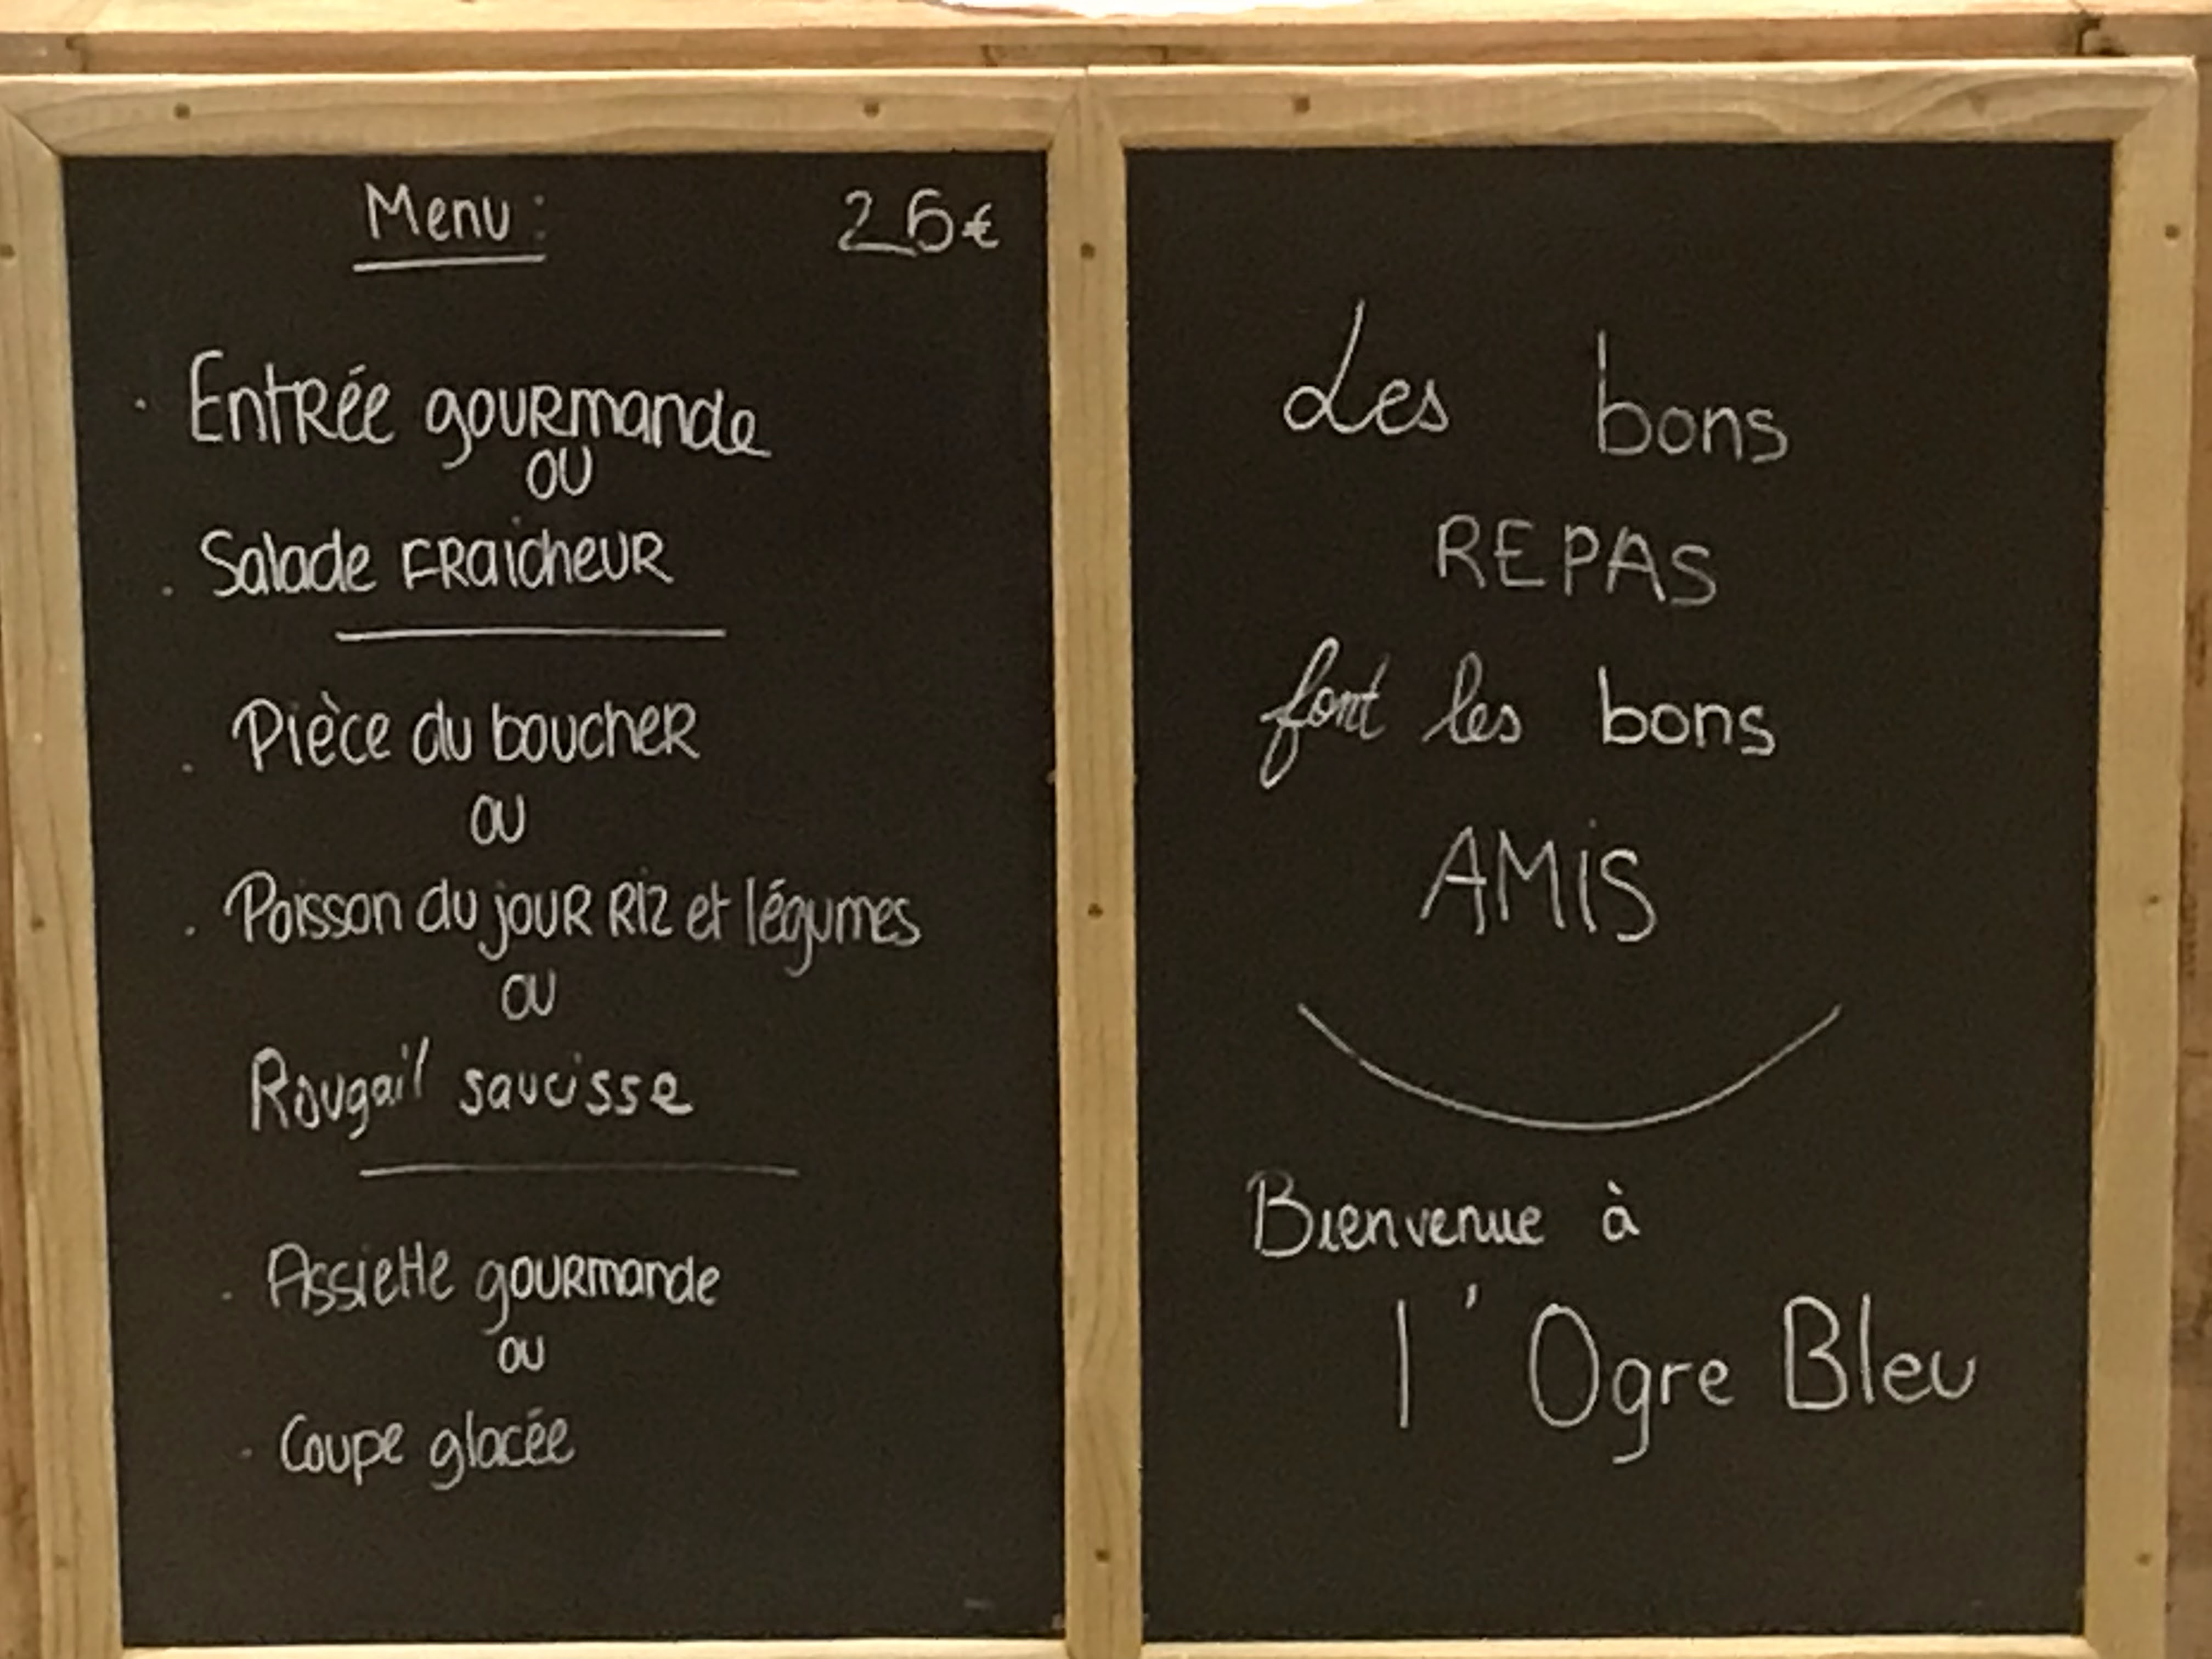 Menu : 26€
· Entrée gourmande
ou
. Salade fraicheur
. Pièce du boucher
ou
. Poisson du jour Riz et légumes
ou
Rougail saucisse
. Assiette gourmande
ou
. Coupe glacée
Les bons
REPAS
font les bons
AMiS
Bienvenue à
l'Ogre Bleu